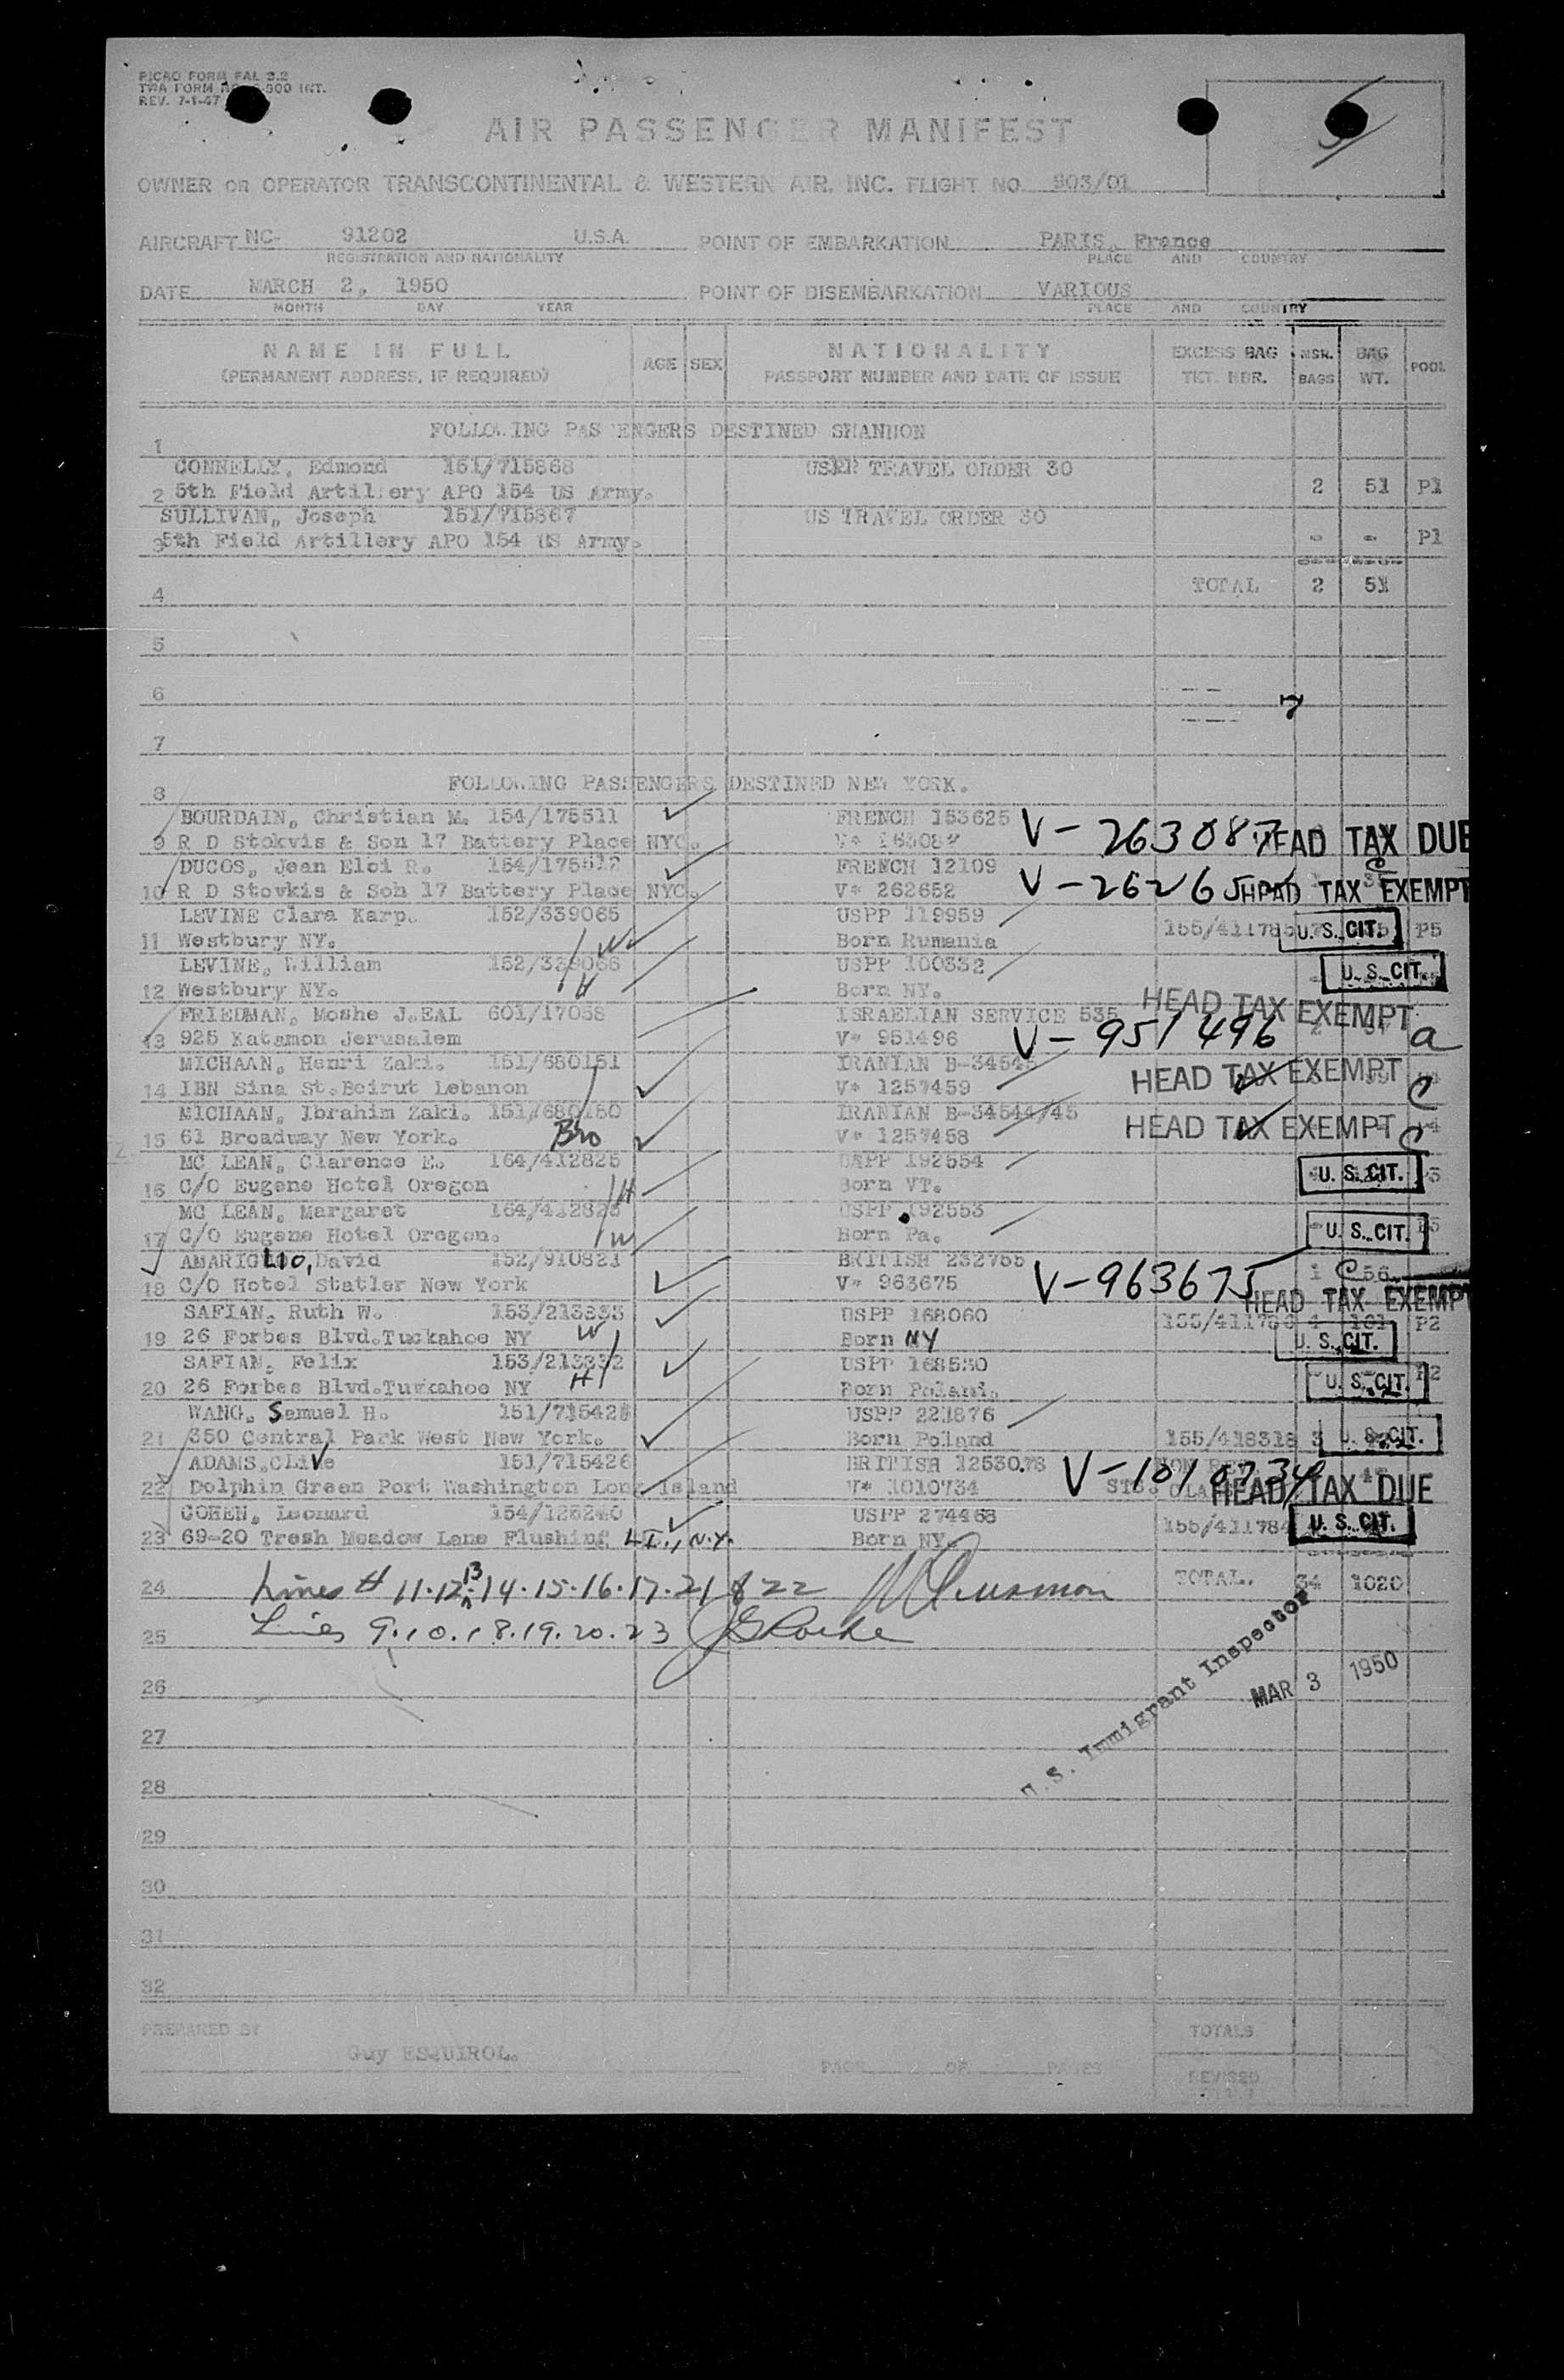 PICAO FORM FAL 3.2
TWA FORM NO. -500 INT.
REV. 7-1-47
AIR PASSENGER MANIFEST
OWNER OR OPERATOR TRANSCONTINENTAL & WESTERN AIR, INC. FLIGHT NO. 903/01
AIRCRAFT NC- 91202 U.S.A. POINT OF EMBARKATION PARIS, France
REGISTRATION AND NATIONALITY PLACE AND COUNTRY
DATE MARCH 2, 1950 POINT OF DISEMBARKATION VARIOUS
MONTH DAY YEAR PLACE AND COUNTRY
NAME IN FULL AGE SEX NATIONALITY EXCESS BAG NBR. BAG POOL
(PERMANENT ADDRESS, IF REQUIRED) PASSPORT NUMBER AND DATE OF ISSUE TKT. NBR. BAGS WT.
FOLLOWING PAS ENGERS DESTINED SHANNON
1
CONNELLY, Edmond 151/715868 USPP TRAVEL ORDER 30
2 5th Field Artillery APO 154 US Army. 2 51 P1
SULLIVAN, Joseph 151/715867 US TRAVEL ORDER 30
3 5th Field Artillery APO 154 US Army. - - P1
4 TOTAL 2 51
5
6
7
8 FOLLOWING PASSENGERS DESTINED NEW YORK.
BOURDAIN, Christian M. 154/175511 FRENCH 153625 V-263087
9 R D Stokvis & Son 17 Battery Place NYC. HEAD TAX DUE
DUCOS, Jean Eloi R. 154/175512 FRENCH 12109
10 R D Stovkis & Son 17 Battery Place NYC. V* 262652 V-2626 HEAD TAX EXEMPT
LEVINE Clara Karp. 152/339065 USPP 119959
11 Westbury NY. W Born Rumania 155/411785 U. S. CIT. P5
LEVINE, William 152/339066 USPP 100332 U. S. CIT.
12 Westbury NY. H Born NY.
FRIEDMAN, Moshe J.EAL 601/17058 ISRAELIAN SERVICE 535 HEAD TAX EXEMPT
13 925 Katamon Jerusalem V* 951496 V-951496 a
MICHAAN, Henri Zaki. 151/680151 IRANIAN B-34545 HEAD TAX EXEMPT
14 IBN Sina St.Beirut Lebanon V* 1257459 C
MICHAAN, Ibrahim Zaki. 151/680150 IRANIAN B-34544/45 HEAD TAX EXEMPT
15 61 Broadway New York. Bro V* 1257458 C
MC LEAN, Clarence E. 164/412825 UAPP 192554
16 C/O Eugene Hotel Oregon H Born VT. U. S. CIT.
MC LEAN, Margaret 164/412826 USPP 192553
17 C/O Eugene Hotel Oregon. W Born Pa. U. S. CIT.
AMARIGLIO, David 152/910821 BRITISH 232755
18 C/O Hotel Statler New York V* 963675 V-963675 1 C 56
HEAD TAX EXEMPT
SAFIAN, Ruth W. 153/213833 USPP 168060 P2
19 26 Forbes Blvd.Tuckahoe NY W Born NY U. S. CIT.
SAFIAN, Felix 153/213832 USPP 168530
20 26 Forbes Blvd.Tuckahoe NY H Born Poland. U. S. CIT.
WANG, Samuel H. 151/715425 USPP 221876
21 350 Central Park West New York. Born Poland 155/418318 3 U. S. CIT.
ADAMS,CLive 151/715426 BRITISH 1253078 V-1010734
22 Dolphin Green Port Washington Long Island V* 1010734 HEAD TAX DUE
COHEN, Leonard 154/128240 USPP 274468
23 69-20 Tresh Meadow Lane Flushing L.I., N.Y. Born NY. 155/411784 U. S. CIT.
24 Lines # 11.12.13.14.15.16.17.21 & 22 TOTAL. 34 1020
25 Lines 9.10.18.19.20.23
U.S. Immigrant Inspector
MAR 3 1950
26
27
28
29
30
31
32
PREPARED BY Guy ESQUIROL. PAGE OF PAGES TOTALS
REVISED